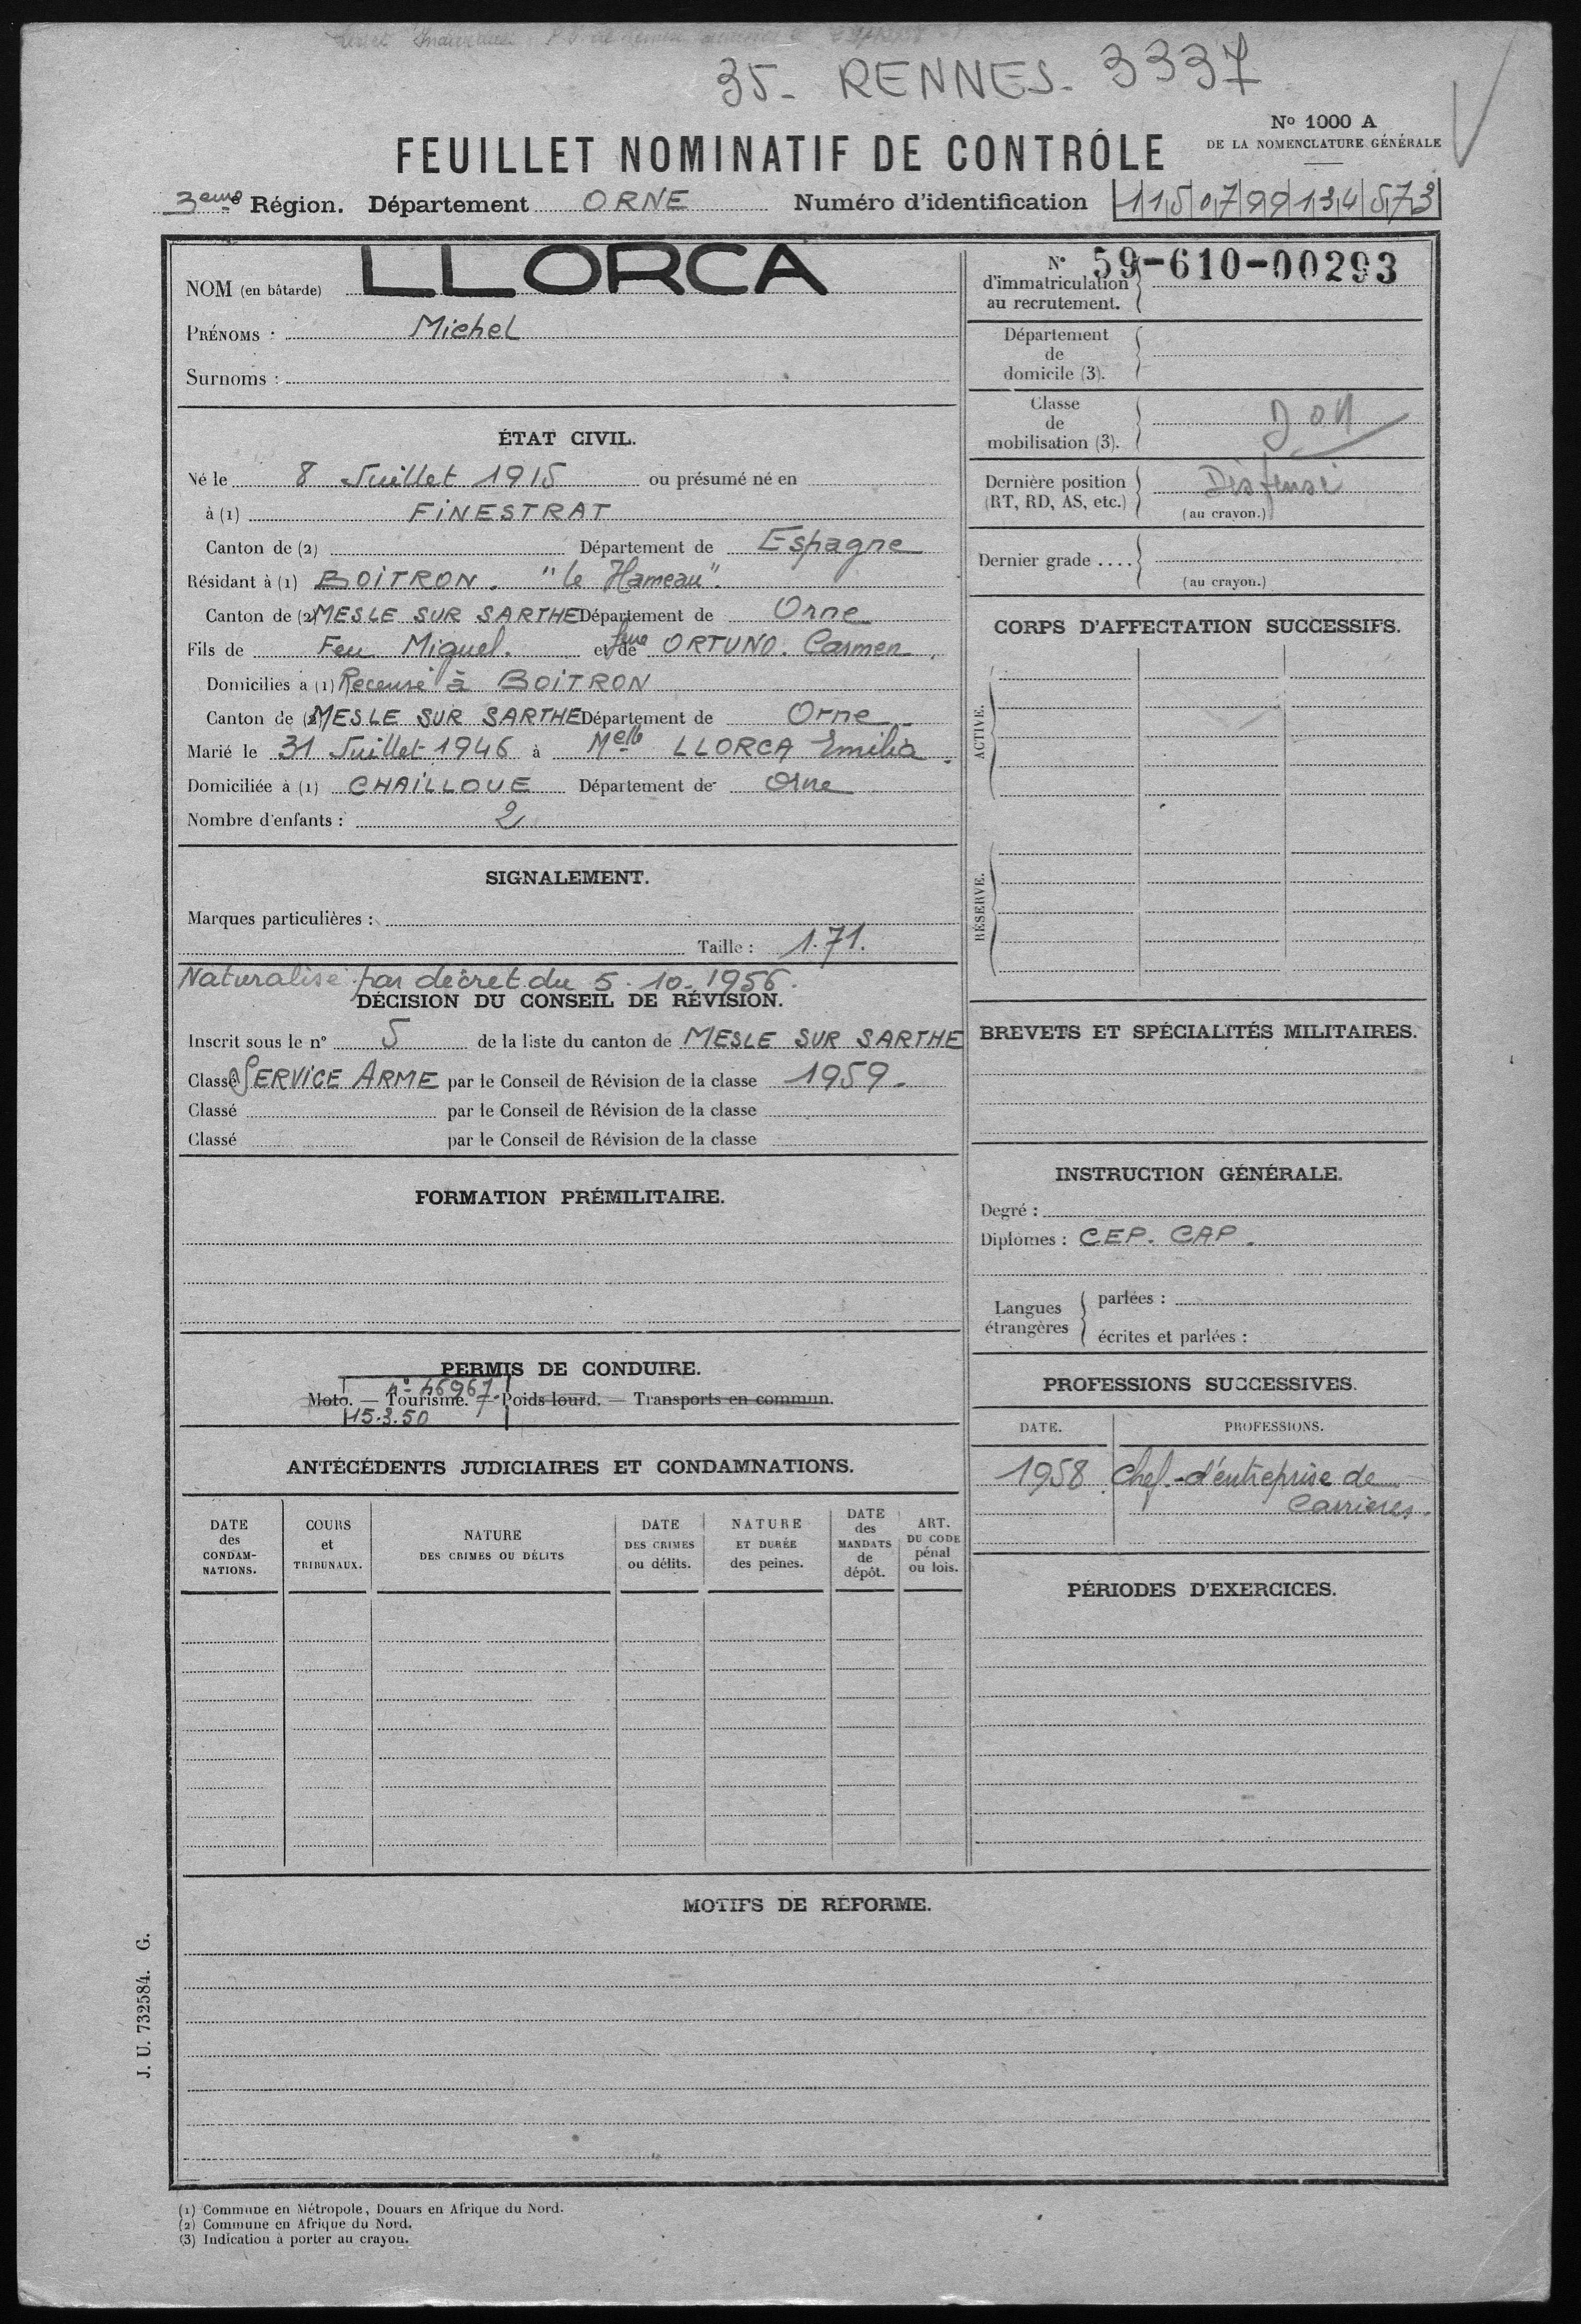 35 - RENNES - 3337
N° 1000 A
DE LA NOMENCLATURE GÉNÉRALE
FEUILLET NOMINATIF DE CONTRÔLE
3eme Région. Département ORNE Numéro d'identification 1 15 07 99 134 573
NOM (en bâtarde) LLORCA
PRÉNOMS : Michel
Surnoms :
ÉTAT CIVIL.
Né le 8 Juillet 1915 ou présumé né en
à (1) FINESTRAT
Canton de (2) Département de Espagne
Résidant à (1) BOITRON. "le Hameau".
Canton de (2) MESLE SUR SARTHE Département de Orne
Fils de Feu Miguel. et de ORTUNO. Carmen.
Domiciliés à (1) Recensé à BOITRON
Canton de (2) MESLE SUR SARTHE Département de Orne
Marié le 31 Juillet 1946 à Melle LLORCA Emilia.
Domiciliée à (1) CHAILLOUE Département de Orne
Nombre d'enfants : 2
SIGNALEMENT.
Marques particulières :
Taille : 1.71.
Naturalisé par décret du 5.10.1956.
DÉCISION DU CONSEIL DE RÉVISION.
Inscrit sous le n° 5 de la liste du canton de MESLE SUR SARTHE
Classé SERVICE ARME par le Conseil de Révision de la classe 1959.
Classé par le Conseil de Révision de la classe
Classé par le Conseil de Révision de la classe
FORMATION PRÉMILITAIRE.
PERMIS DE CONDUIRE.
n° 46967
Moto. — Tourisme. — Poids lourd. — Transports en commun.
15.3.50
ANTÉCÉDENTS JUDICIAIRES ET CONDAMNATIONS.
DATE des CONDAMNATIONS.
COURS et TRIBUNAUX.
NATURE DES CRIMES OU DÉLITS
DATE DES CRIMES ou délits.
NATURE ET DURÉE des peines.
DATE des MANDATS de dépôt.
ART. DU CODE pénal ou lois.
N° d'immatriculation au recrutement. 59-610-00293
Département de domicile (3).
Classe de mobilisation (3).
Dernière position (RT, RD, AS, etc.) Dispensé
(au crayon.)
Dernier grade ....
(au crayon.)
CORPS D'AFFECTATION SUCCESSIFS.
ACTIVE.
RÉSERVE.
BREVETS ET SPÉCIALITÉS MILITAIRES.
INSTRUCTION GÉNÉRALE.
Degré :
Diplômes : CEP. CAP.
Langues étrangères
parlées :
écrites et parlées :
PROFESSIONS SUCCESSIVES.
DATE. PROFESSIONS.
1958 Chef-d'entreprise de
Carrieres.
PÉRIODES D'EXERCICES.
MOTIFS DE RÉFORME.
J. U. 732584. G.
(1) Commune en Métropole, Douars en Afrique du Nord.
(2) Commune en Afrique du Nord.
(3) Indication à porter au crayon.